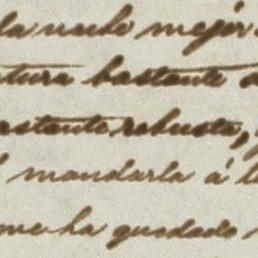 la nacho mejor
tura bastante
astante robusta,
mandarla á l
me ha quedado